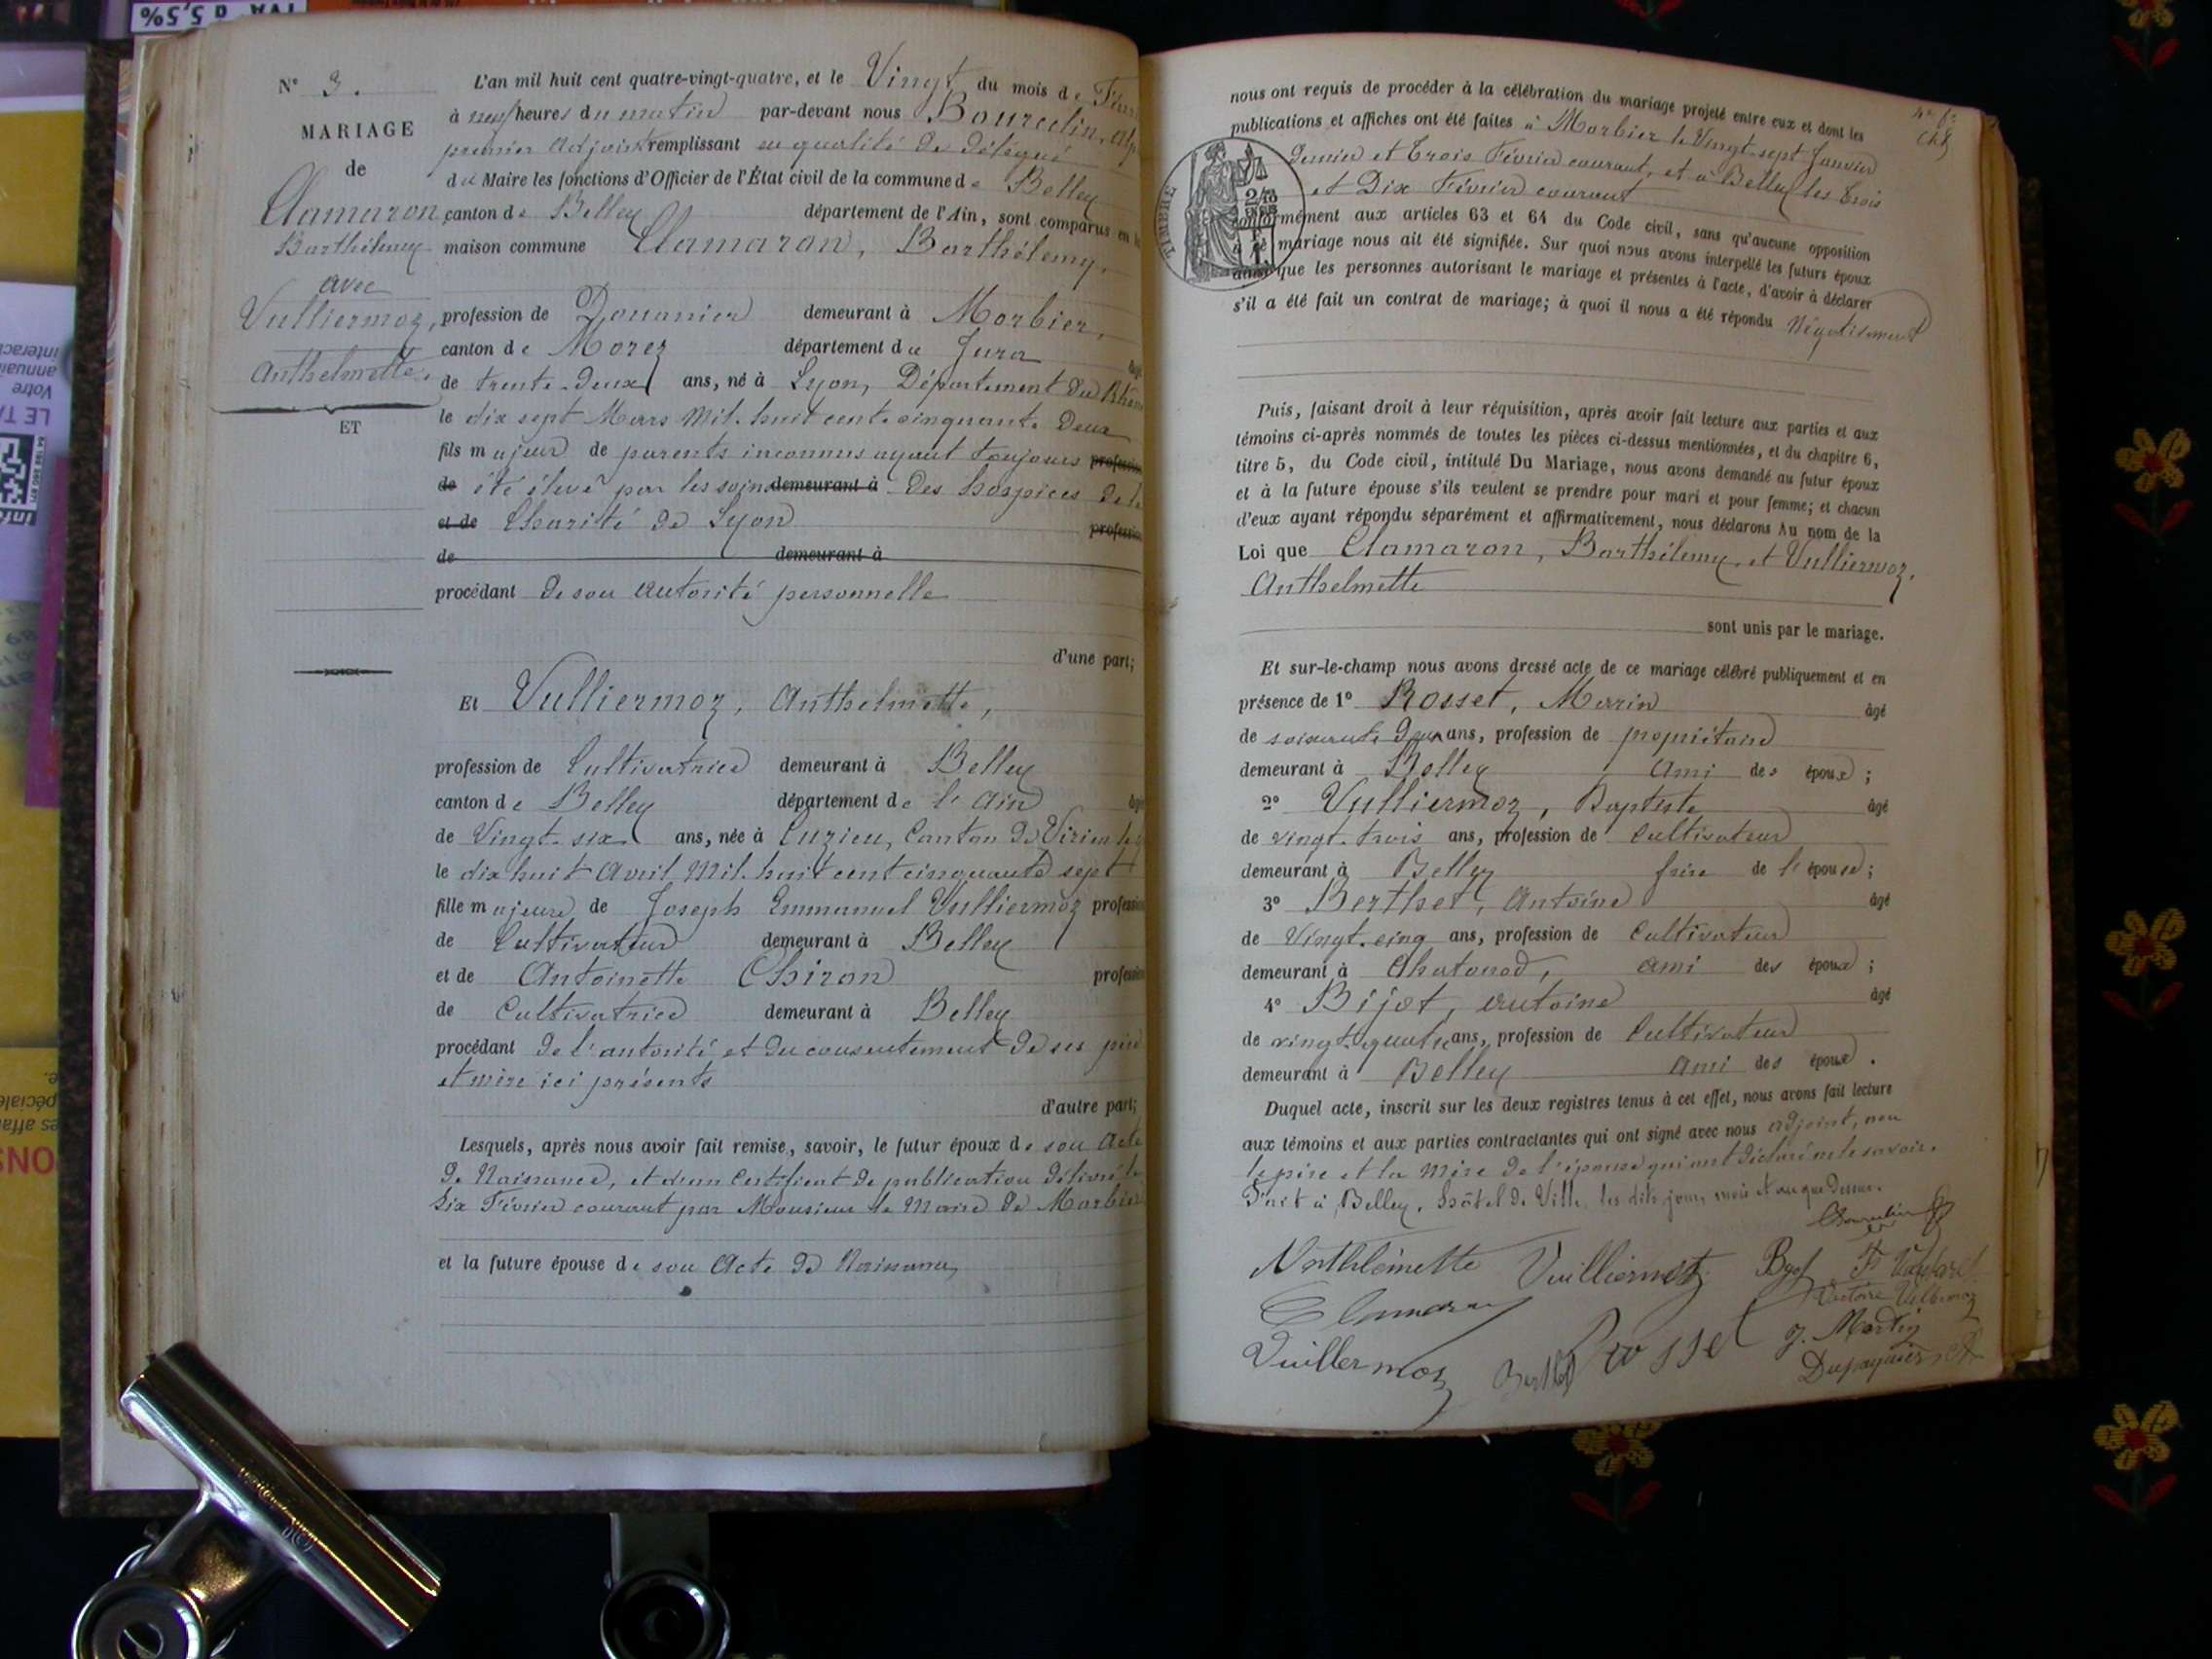 N° 3.
MARIAGE
de
Clamaron
Barthélemy
avec
Vulliermoz,
Anthelmette.
ET
L'an mil huit cent quatre-vingt-quatre, et le Vingt du mois de
à neuf heures du matin par-devant nous Bourcelin,
premier adjoint remplissant en qualité de délégué
du Maire les fonctions d'Officier de l'État civil de la commune de Belley
canton de Belley département de l'Ain, sont comparus en
maison commune Clamaron, Barthélemy,
profession de Douanier demeurant à Morbier,
canton de Morez département du Jura
de trente-deux ans, né à Lyon, Département du Rhône
le dix sept Mars Mil huit cent cinquante Deux
fils majeur de parents inconnus ayant toujours profession
de été élevé par les soins demeurant à des hospices de la
et de Charité de Lyon profession
de demeurant à
procédant de son autorité personnelle
d'une part;
Et Vulliermoz, Anthelmette,
profession de Cultivatrice demeurant à Belley
canton de Belley département de l'Ain âgé
de Vingt-six ans, née à Cuzieu, Canton de Virieu
le dix huit Avril Mil huit cent cinquante sept
fille majeure de Joseph Emmanuel Vulliermoz profession
de Cultivateur demeurant à Belley
et de Antoinette Chiron profession
de Cultivatrice demeurant à Belley
procédant de l'autorité et du consentement de ses père
et mère ici présents
d'autre part;
Lesquels, après nous avoir fait remise, savoir, le futur époux de son Acte
de Naissance, et d'un Certificat de publication délivré le
dix Février courant par Monsieur le Maire de Morbier
et la future épouse de son Acte de Naissance,
nous ont requis de procéder à la célébration du mariage projeté entre eux et dont les
publications et affiches ont été faites à Morbier le Vingt-sept Janvier
dernier et trois Février courant, et à Belley les trois
et Dix Février courant
TIMBRE
conformément aux articles 63 et 64 du Code civil, sans qu'aucune opposition
à ce mariage nous ait été signifiée. Sur quoi nous avons interpellé les futurs époux
ainsi que les personnes autorisant le mariage et présentes à l'acte, d'avoir à déclarer
s'il a été fait un contrat de mariage; à quoi il nous a été répondu Négativement
Puis, faisant droit à leur réquisition, après avoir fait lecture aux parties et aux
témoins ci-après nommés de toutes les pièces ci-dessus mentionnées, et du chapitre 6,
titre 5, du Code civil, intitulé Du Mariage, nous avons demandé au futur époux
et à la future épouse s'ils veulent se prendre pour mari et pour femme; et chacun
d'eux ayant répondu séparément et affirmativement, nous déclarons Au nom de la
Loi que Clamaron, Barthélemy, et Vulliermoz,
Anthelmette
sont unis par le mariage.
Et sur-le-champ nous avons dressé acte de ce mariage célébré publiquement et en
présence de 1° Rosset, Marin âgé
de soixante deux ans, profession de propriétaire
demeurant à Belley ami des époux;
2° Vulliermoz, Baptiste âgé
de vingt-trois ans, profession de Cultivateur
demeurant à Belley frère de l'épouse;
3° Berthet, Antoine âgé
de Vingt-cinq ans, profession de Cultivateur
demeurant à Chatonod, ami des époux;
4° Bijot, Antoine âgé
de vingt-quatre ans, profession de Cultivateur
demeurant à Belley ami des époux.
Duquel acte, inscrit sur les deux registres tenus à cet effet, nous avons fait lecture
aux témoins et aux parties contractantes qui ont signé avec nous adjoint, non
le père et la mère de l'épouse qui ont déclaré ne le savoir.
Fait à Belley, hôtel de Ville, les dits jour, mois et an que dessus.
Vuilliermoz
Clamaron
Victoire
Vuillermoz
Rosset
J. Martin